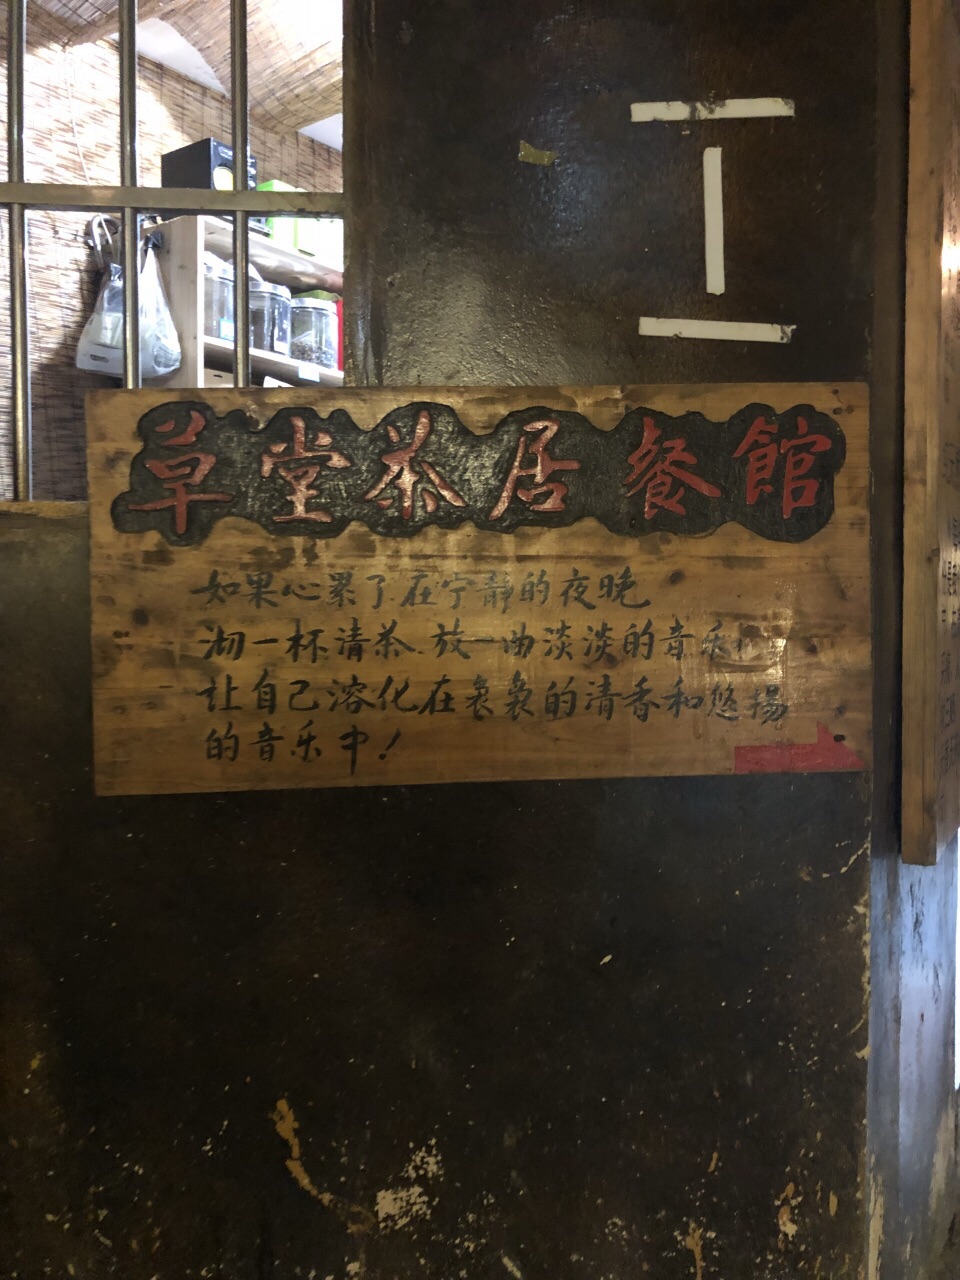 草堂茶居餐館
如果心累了在宁静的夜晚
沏一杯清茶 放一曲淡淡的音乐
让自己溶化在袅袅的清香和悠揚
的音乐中!